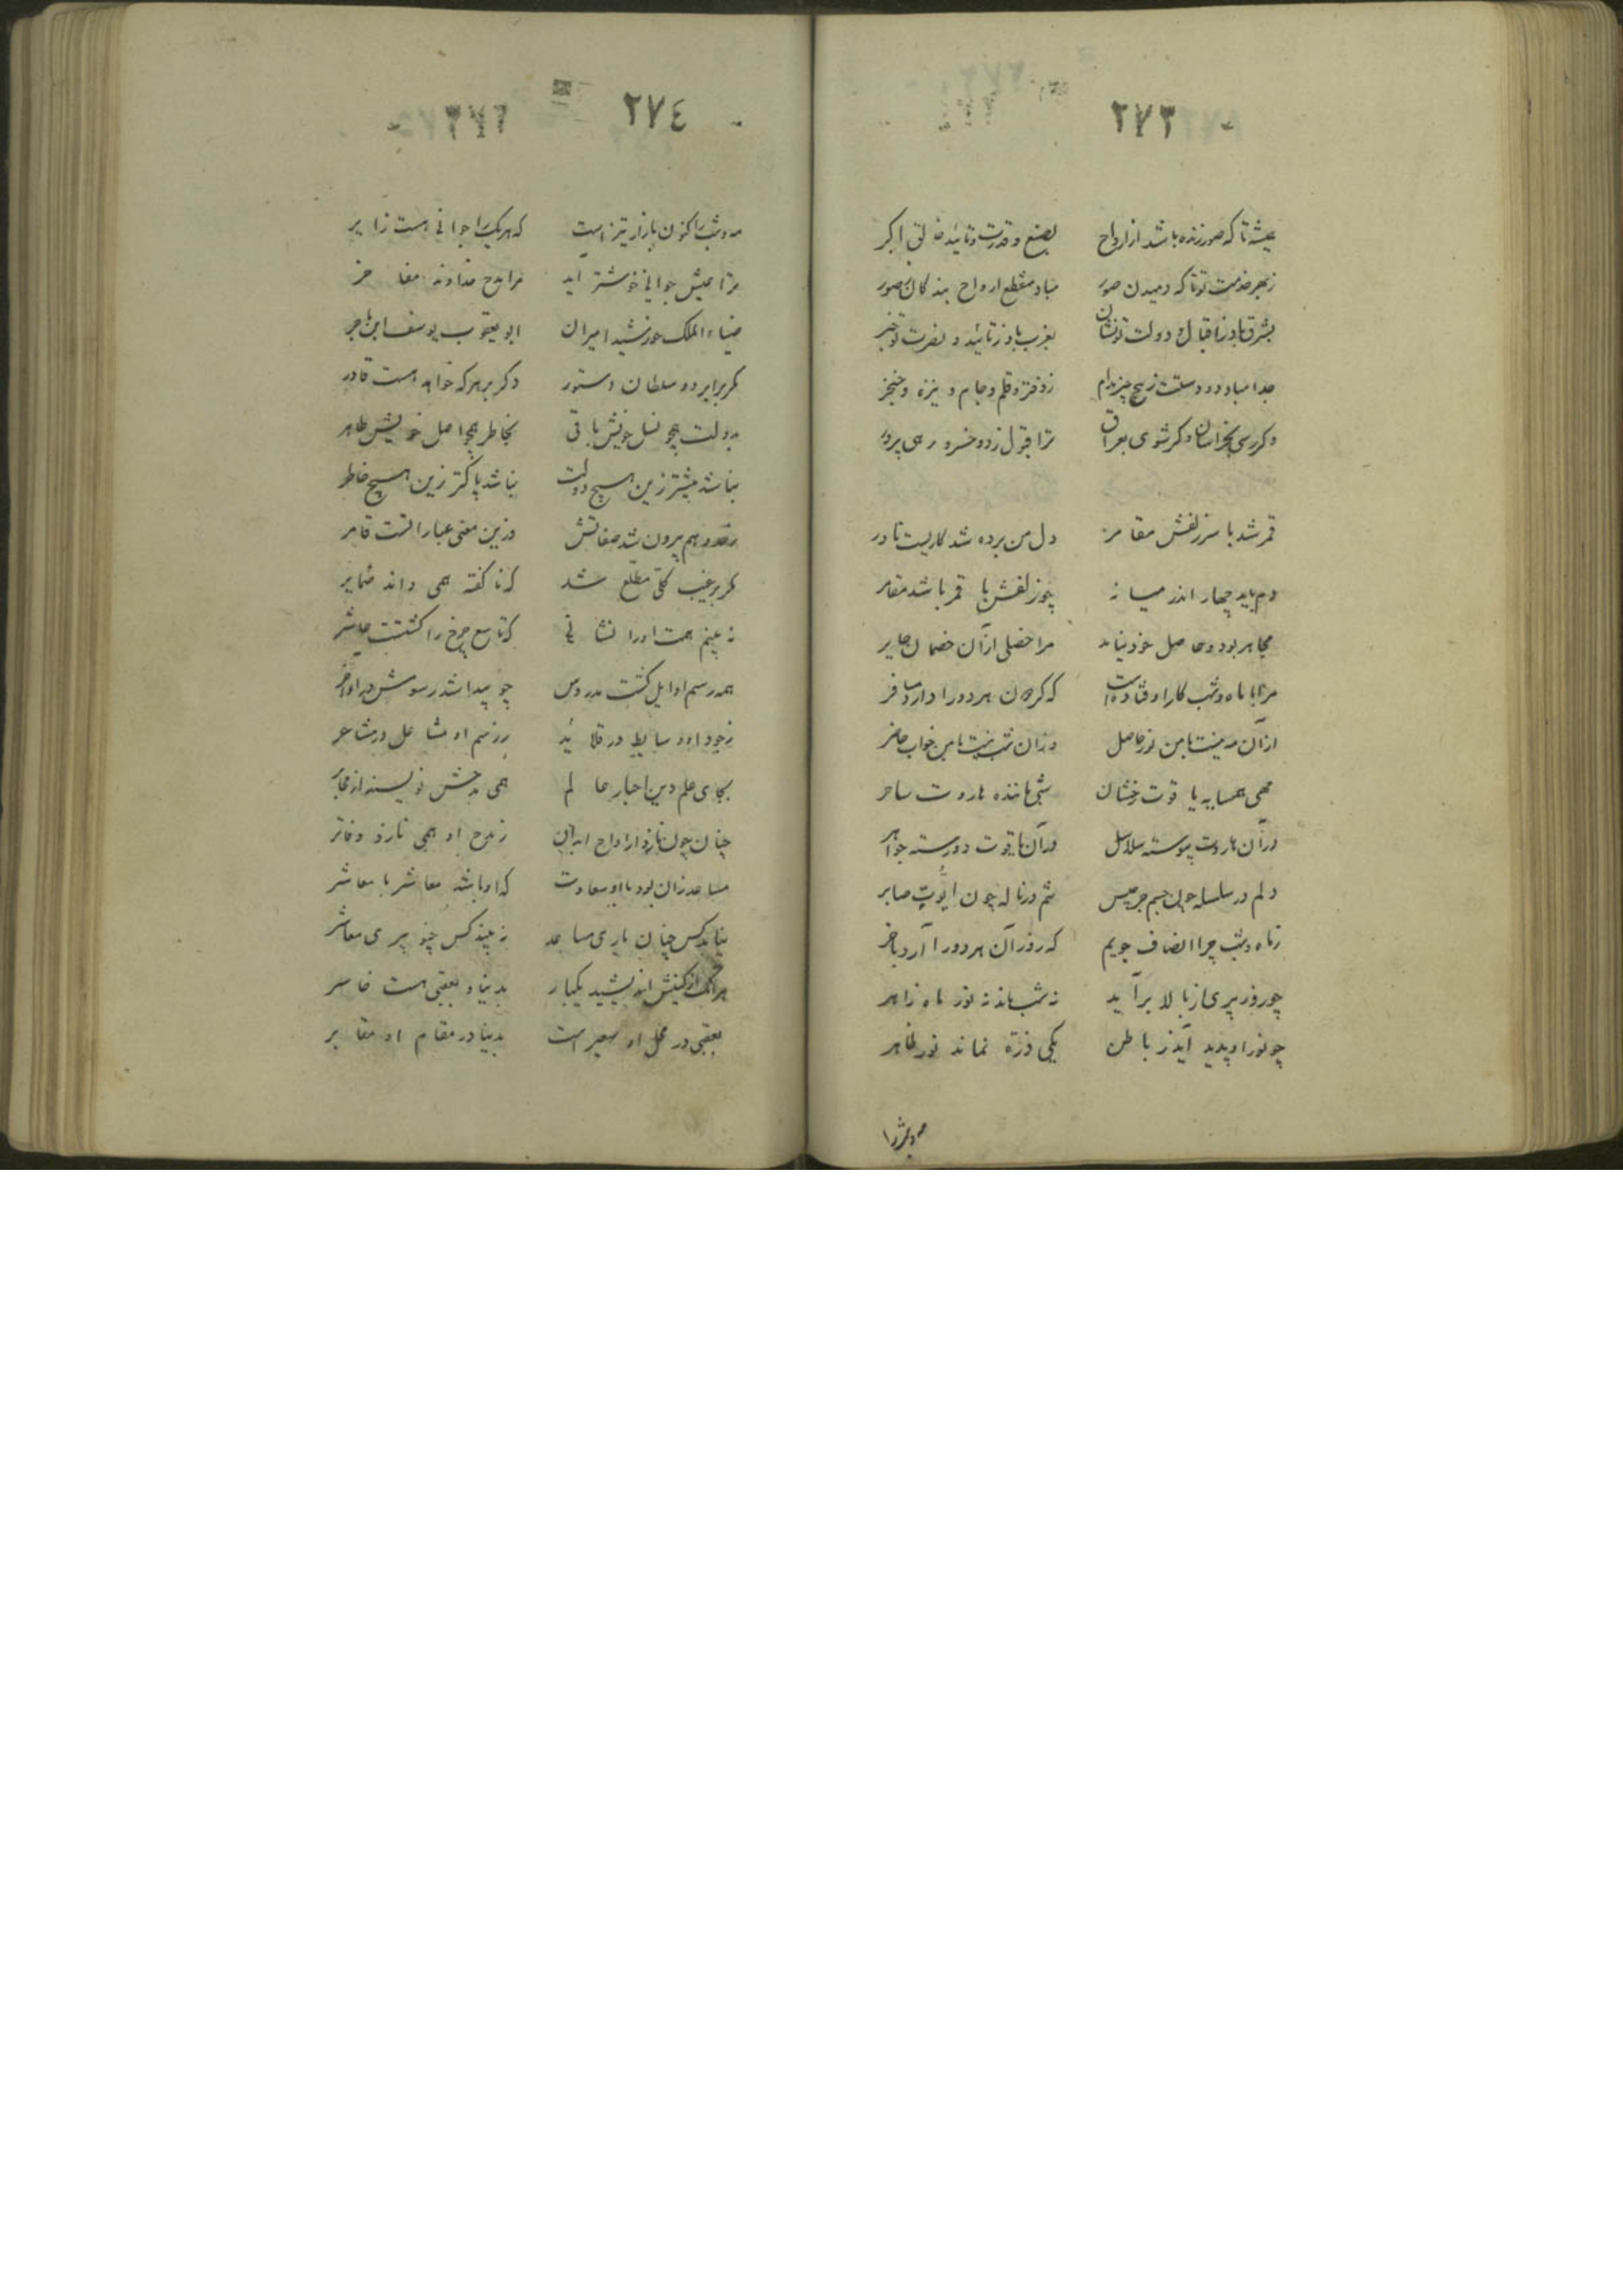 ۲۷۳
همیشه تا که صور زنده باشد از ارواح بصنع و قدرت و تائید خالق اکبر
ز بهر خدمت تو تا که دمیدن صور مباد منقطع ارواح بندگان صور
بشرق باد ز اقبال و دولت تو نشان بغرب باد ز تائید و نصرت تو خبر
جدا مباد دو دستت ز پنج چیز مدام ز دفتر و قلم و جام و نیزه و خنجر
وکر رسی بخراسان وکر شوی بعراق ترا قبول ز دو خسرو رهی پرور
قمر شد با سر زلفش مقامر دل من برده شد کاریست نادر
دم باید چهار اندر میانه چو زلفش با قمر باشد مقامر
مجاهر بود و حاصل خود نیامد مرا خصلی از آن خصمان جایر
مرا با ماه و شب کار اوفتادست که کردن هر دو را دارد مسافر
از آن مه نیست با من نور حاصل وزان شب نیست با من خواب حاضر
مهی همسایه یاقوت رخشان شبی ماننده هاروت ساحر
در آن هاروت پیوسته سلاسل در آن یاقوت دو رسته جواهر
دلم در سلسله چون جسم جرجیس تنم در ناله چون ایوب صابر
ز ماه و شب چرا انصاف جویم که روز آن هر دو را آرد باخر
چو روز پیری از بالا برآید نه شب ماند نه نور ماه زاهر
چو نور او پدید آید ز باطن یکی ذره نماند نور ظاهر
مه و شب را
۲۷٤
مه و شب را کنون بازار تیز است که هر یک را جوانی هست زایر
مرا عیش جوانی خوشتر آید مرا مدح خداوند مفاخر
ضیاء الملک خورشید امیران ابو یعقوب یوسف ابن باجر
کریر ایر دو سلطان دستور دکر بر هر که خواهد هست قادر
بدولت همچو نسل خویش باقی بخاطر همچو اصل خویش طاهر
نباشد بیشتر زین هیچ دولت نباشد پاکتر زین هیچ خاطر
ز حد وهم بیرون شد صفاتش وزین معنی عبارا تست قاصر
مکر بر غیب کلی مطلع شد که ناکفته همی داند ضمایر
نه بینم همت او را نشانی که تاسع چرخ را کشتست عاشر
همه رسم اوایل کشت مدروس چو پیدا شد رسومش در اواخر
ز جود او وسایط در قلاید ز رسم او مشاعل در مشاعر
بجای علم دین احبار عالم همی مدحش نویسند از محابر
چنان چون نازد ارواح ابدان ز مدح او همی نازد دفاتر
مساعد زان بود با او سعادت که او باشد معاشر با معاشر
نیابد کس چنان یاری مساعد نه بیند کس چنو پیری معاشر
هر آنک از کینش اندیشید یکبار بدنیا و بعقبی هست خاسر
بعقبی در محل او سعیر است بدنیا در مقام او مقابر